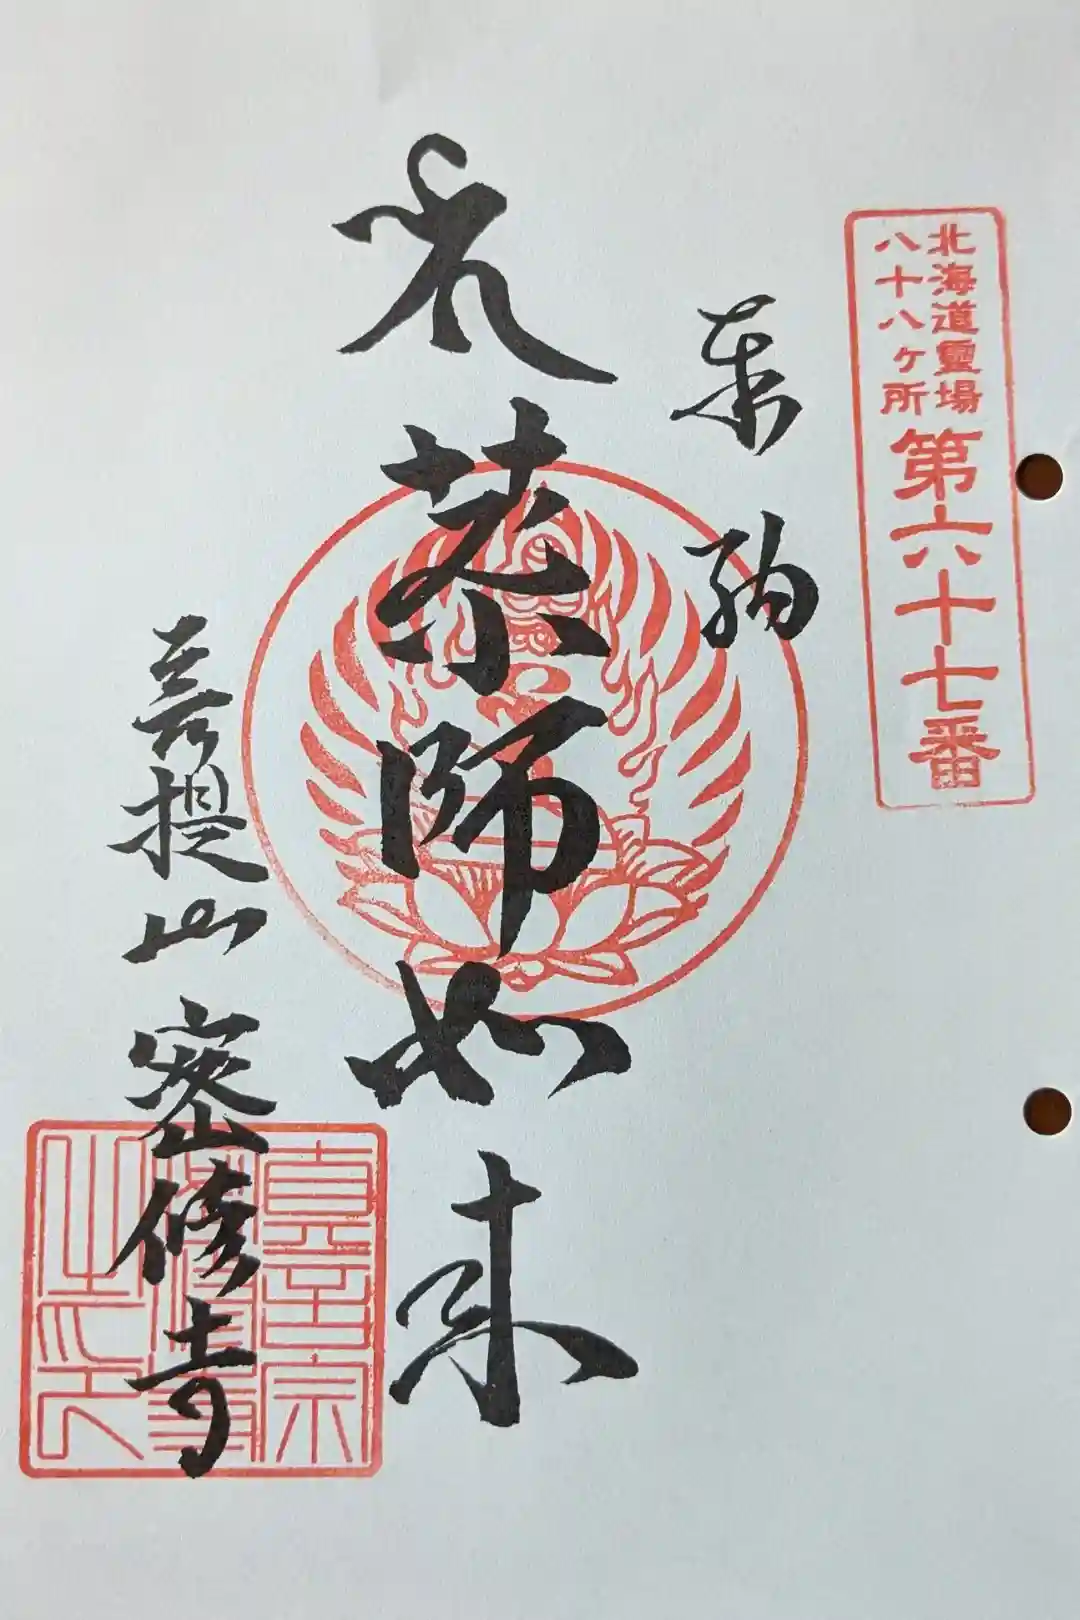 北海道靈場
八十八ヶ所
第六十七番
奉納
薬師如来
菩提山密修寺
真言宗
密修寺
之印